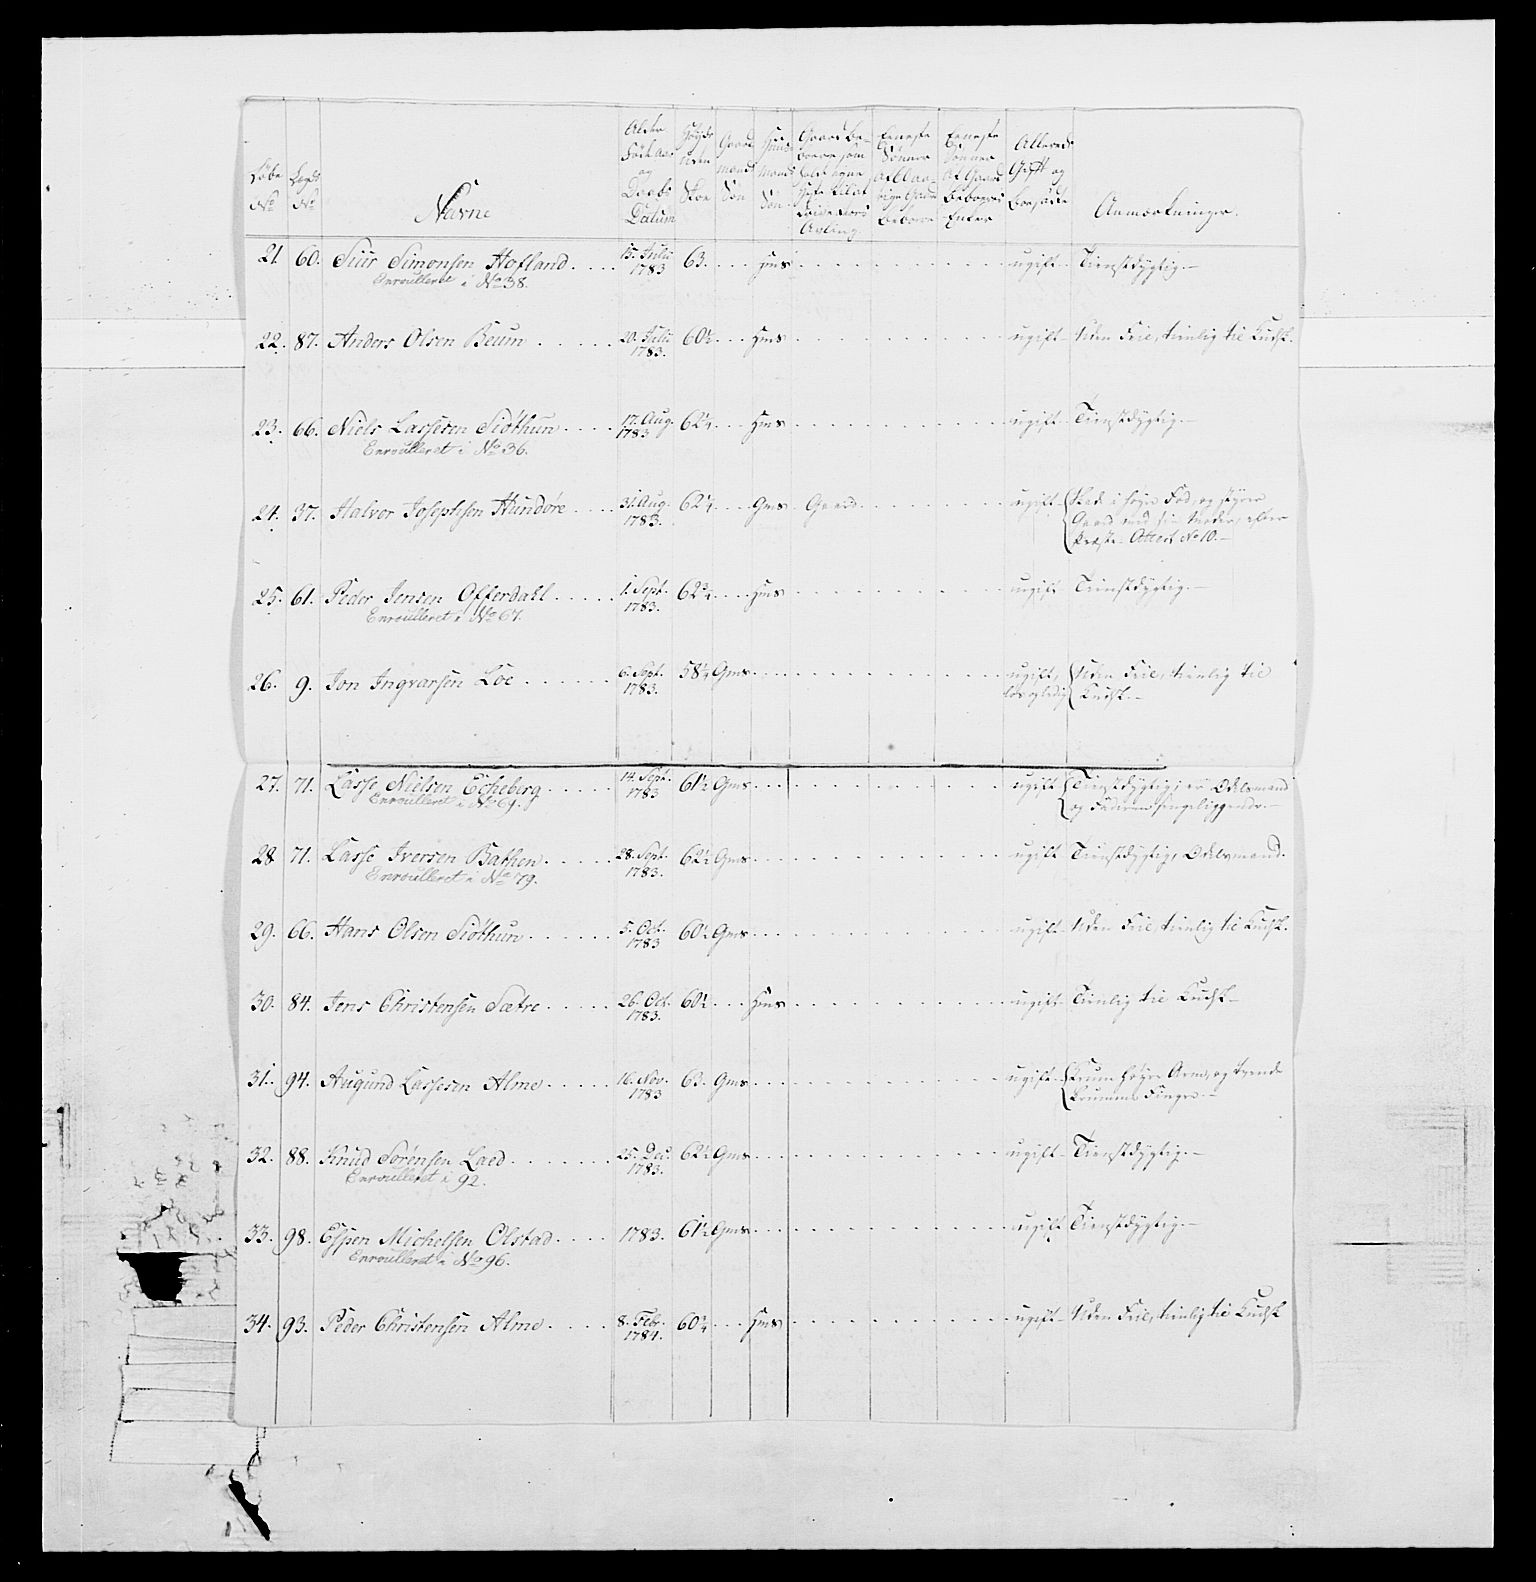 Løbe No
Lægds No
Navne
Alder Født Aar og Daabs Datum
Høyde uden Skoe
Gaard mands Søn
Huus mands Søn
Eeneste Sønner
Eeneste Sønner Af Gaard Enker
Allerede Gift og
Anmærkninger.
21. 60. Siur Simonsen Hofland 15. Julii 1783 63. Hms ugift Tienstdygtig.
Enroulleret i No 38.
22. 87. Anders Olsen Beum 20. Julii 1783. 60½ Hms ugift Uden Feil, tienlig til Kudsk.
23. 66. Niels Lassesen Siøthun 17. Aug. 1783 62¼ Hms ugift Tienstdygtig.
Enroulleret i No 36.
24. 37. Halvor Josephsen Hundøre 31. Aug. 1783. 62¼ Gms Gaard ugift Skade i høyre Fod, og styrer
Gaard med sin Moder, efter
Præste Attest No 10.
25. 61. Peder Jensen Offerdahl 1. Sept. 1783. 62¾ Hms ugift Tienstdygtig.
Enroulleret i No 67.
26. 9. Jon Ingvarsen Loe 6. Sept. 1783. 58¼ Gms ugift, Uden Feil, tienlig til
Kudsk.
27. 71. Lasse Nielsen Eckeberg 14. Sept. 1783 61½ Gms ugift Tienstdygtig, er Odelsmand
og Faderen sengeliggende.
Enroulleret i No 69.
28 71. Lasse Iversen Bathen 28. Sept. 1783. 62½ Gms ugift Tienstdygtig, Odelsmand.
Enroulleret i No 79.
29. 66. Hans Olsen Siøthun 5. Oct. 1783 60½ Gms ugift Uden Feil, tienlig til Kudsk.
30. 84. Jens Christensen Sætre 26. Oct. 1783. 60½ Hms ugift Tienlig til Kudsk
31. 94. Augund Lassesen Alme 16. Nov. 1783 63. Gms ugift Krum høyre Arm, og trende
krumme Fingre.
32. 88. Knud Sørensen Laed 25. Dec. 1783. 62½ Gms ugift Tienstdygtig.
Enroulleret i 92.
33. 98. Espen Michelsen Olstad 1783. 61½ Gms ugift Tienstdygtig.
Enroulleret i No 96.
34. 93. Peder Christensen Alme 8. Febr. 1784. 60¾ Hms ugift Uden Feil, tienlig til Kudsk